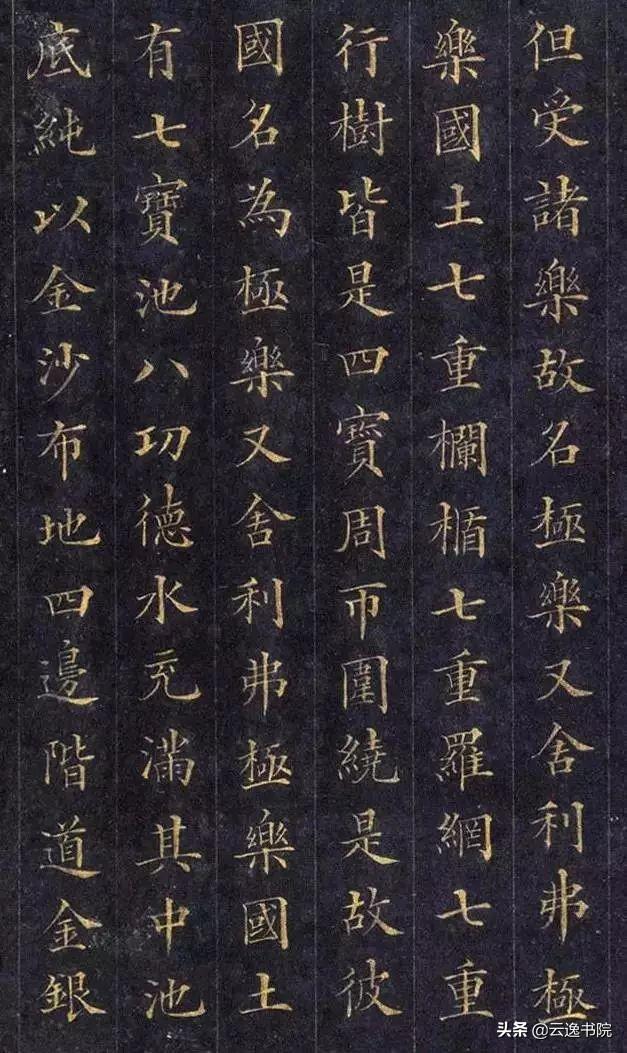 但受諸樂故名極樂又舍利弗極
樂國土七重欄楯七重羅網七重
行樹皆是四寶周帀圍繞是故彼
國名為極樂又舍利弗極樂國土
有七寶池八功德水充滿其中池
底純以金沙布地四邊階道金銀
头条 @云逸书院